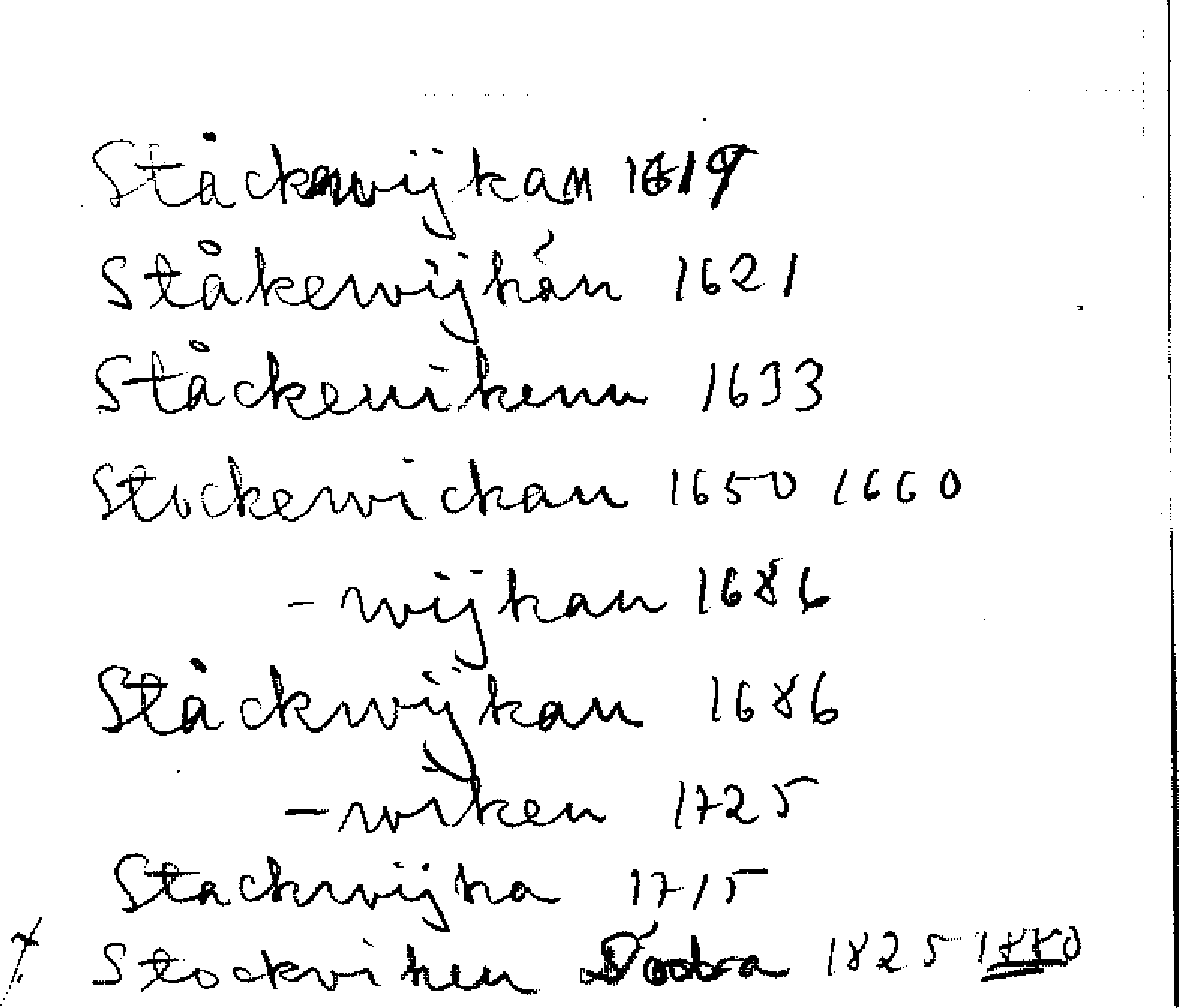 Ståckwijkan 1619
Ståkewijkán 1621
Ståckeuikenn 1633
Stockewickan 1650 1660
- wijkan 1686
Ståckwijkan 1686
- wiken 1725
Stackwijka 1715
Stockviken Södra 1825